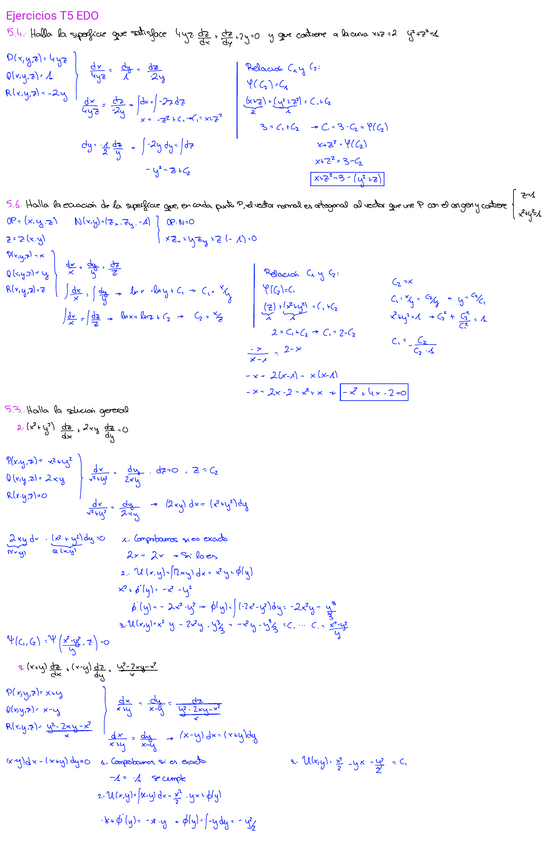 Ejercicios T5 EDO
5.4. Halla la superficie que satisface 4yz dz/dx + dz/dy + 2y=0 y que contiene a la curva x+z=2 y²+z²=1
P(x,y,z)=4yz
Q(x,y,z)=1
R(x,y,z)=-2y
dx/4yz = dy/1 = dz/-2y
dx/4yz = dz/-2y = ∫dx = ∫-2zdz
x = -z²+C₁ → C₁=x+z²
dy = -1/2 dz/y = ∫-2y dy = ∫dz
-y² = z+C₂
Relación C₁ y C₂:
φ(C₂)=C₁
(x+z)+(y²+z²)=C₁+C₂
3=C₁+C₂ → C₁=3-C₂=φ(C₂)
x+z²=φ(C₂)
x+z²=3-C₂
x+z²=3-(y²+z)
5.6. Halla la ecuación de la superficie que, en cada punto P, el vector normal es ortogonal al vector que une P con el origen y contiene { z=1 x²+y²=1
OP=(x,y,z) N(x,y)=(Zx, Zy, -1)
OP·N=0
z=z(x,y)
xZx+yZy+z(-1)=0
P(x,y,z)=x
Q(x,y,z)=y
R(x,y,z)=z
dx/x = dy/y = dz/z
∫dx/x = ∫dy/y → lnx=lny+C₁ → C₁=x/y
∫dx/x = ∫dz/z → lnx=lnz+C₂ → C₂=x/z
Relación C₁ y C₂:
φ(C₂)=C₁
(z)+(x²+y²)=C₁+C₂
2=C₁+C₂ → C₁=2-C₂
-x/x-1 = 2-x
-x=2(x-1)-x(x-1)
-x=2x-2-x²+x → -x²+4x-2=0
C₂=x
C₁=x/y=C₂/y → y=C₂/C₁
x²+y²=1 → C₂²+C₂²/C₁²=1
C₁=-C₂/C₂-1
5.3. Halla la solución general
2. (x²+y²) dz/dx + 2xy dz/dy=0
P(x,y,z)=x²+y²
Q(x,y,z)=2xy
R(x,y,z)=0
dx/x²+y² = dy/2xy, dz=0, z=C₂
dx/x²+y² = dy/2xy → (2xy)dx=(x²+y²)dy
2xydx-(x²+y²)dy=0
P(x,y) Q(x,y)
1. Comprobamos si es exacta
2x=2x → Si lo es
2. U(x,y)=∫2xydx=x²y+φ(y)
x²+φ'(y)=-x²-y²
φ'(y)=-2x²-y² → φ(y)=∫(-2x²-y²)dy=-2x²y-y³/3
3. U(x,y)=x²y-2x²y-y³/3=-x²y-y³/3=C₁ ... C₁=x²-y²/y
Ψ(C₁,C₂)=Ψ(x²-y²/y, z)=0
3. (x+y) dz/dx + (x-y) dz/dy = y²-2xy-x²/x
P(x,y,z)=x+y
Q(x,y,z)=x-y
R(x,y,z)=y²-2xy-x²/x
dx/x+y = dy/x-y = dz/y²-2xy-x²/x
dx/x+y = dy/x-y → (x-y)dx=(x+y)dy
(x-y)dx-(x+y)dy=0
1. Comprobamos si es exacta
-1=-1 se cumple
2. U(x,y)=∫(x-y)dx=x²/2-yx+φ(y)
-x+φ'(y)=-x-y → φ(y)=∫-ydy=-y²/2
3. U(x,y)=x²/2-yx-y²/2=C₁